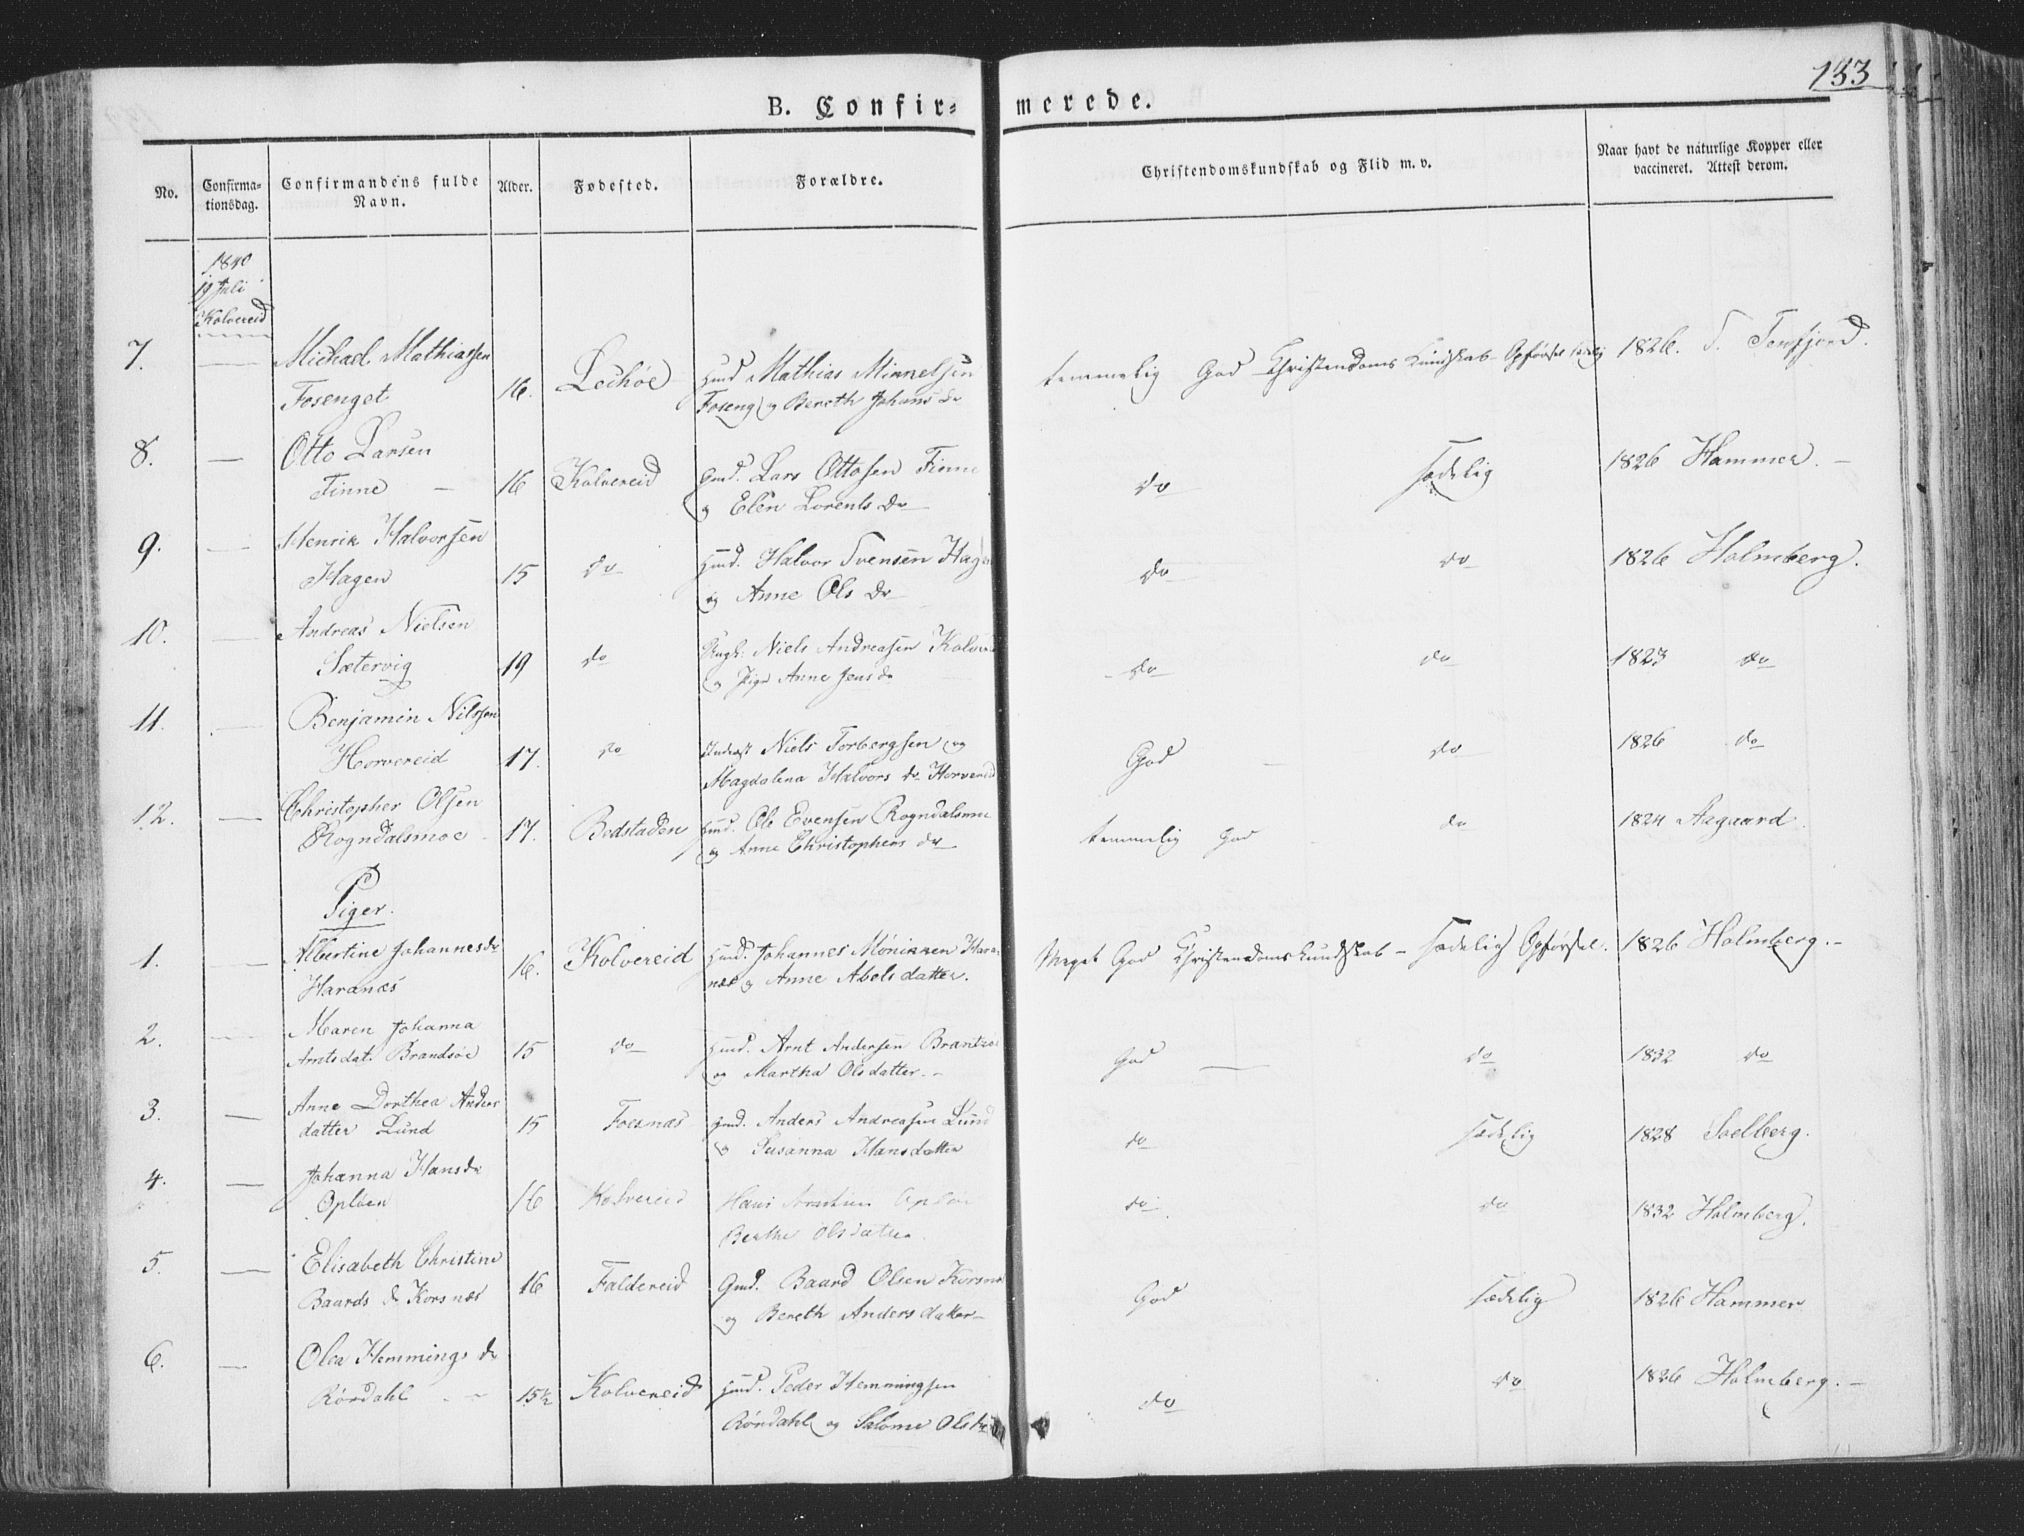 133
B. Confir= merede.
No. Confirma- Confirmandens fulde Alder. Fødested. Forældre. Christendomskundskab og Flid m. v. Naar havt de naturlige Kopper eller
tionsdag. Navn. vaccineret. Attest derom.
1840
19 Juli
Kolvereid
7. — Michael Mathiassen 16. Leckøe Huusmd Mathias Minnelsen temmelig God Christendoms Kundskab - Opførsel sædelig 1826. S. Tenfjord.
Fosenget Foseng og Bereth Johans dr
8. — Otto Larsen 16 Kolvereid Gmd. Lars Ottosen Finne do sædelig 1826 Hammer. —
Finne — og Elen Lorents dr
9. — Henrik Halvorsen 15 do Hmd. Halvor Svensen Hagen do do 1826 Holmberg.
Hagen og Anne Ols dr
10. — Andreas Nielsen 19 do Ungk: Niels Andreasen do do 1823 do
Sætervig og Pige Anne Jens dr
11. — Benjamin Nilssen 17. do Niels Torbergsen og God — do 1826 do
Horvereid Magdalena Halvors dr Horvereid
12. — Christopher Olsen 17. Bedstaden Hmd. Ole Evensen Rogndalsmoe temmelig God do 1824 Aagaard
Rogndalsmoe og Anne Christophers dr
Piger.
1. — Albertine Johannesdr 16. Kolvereid Hmd. Johannes Hara- Meget God Christendoms Kundskab - sædelig Opførsel. 1826 Holmberg. -
Haranæs næs og Anne Abelsdatter.
2. — Maren Johanna 15 do Hmd. Arnt Andersen God — do 1832 do
Arntsdat. Brandsøe og Martha Olsdatter. -
3. — Anne Dorthea Anders 15 Foesnæs Hmd. Anders Andreasen Lund do sædelig 1828 Soelberg.
datter Lund og Susanna Hansdatter
4. — Johanna Hansdr 16 Kolvereid Hans do do 1832 Holmberg.
Oploen Berthe Olsdatter
5. — Elisabeth Christine 16 Faldereid Gmd. Baard Olsen Korsnæs God sædelig 1826 Hammer
Baards dr Korsnæs og Bereth Andersdatter -
6. — Olea Hemmings dr 15½ Kolvereid Hmd. Peder Hemmingsen do do 1826 Holmberg. -
Rørdahl Rørdahl og Salome Olsdr